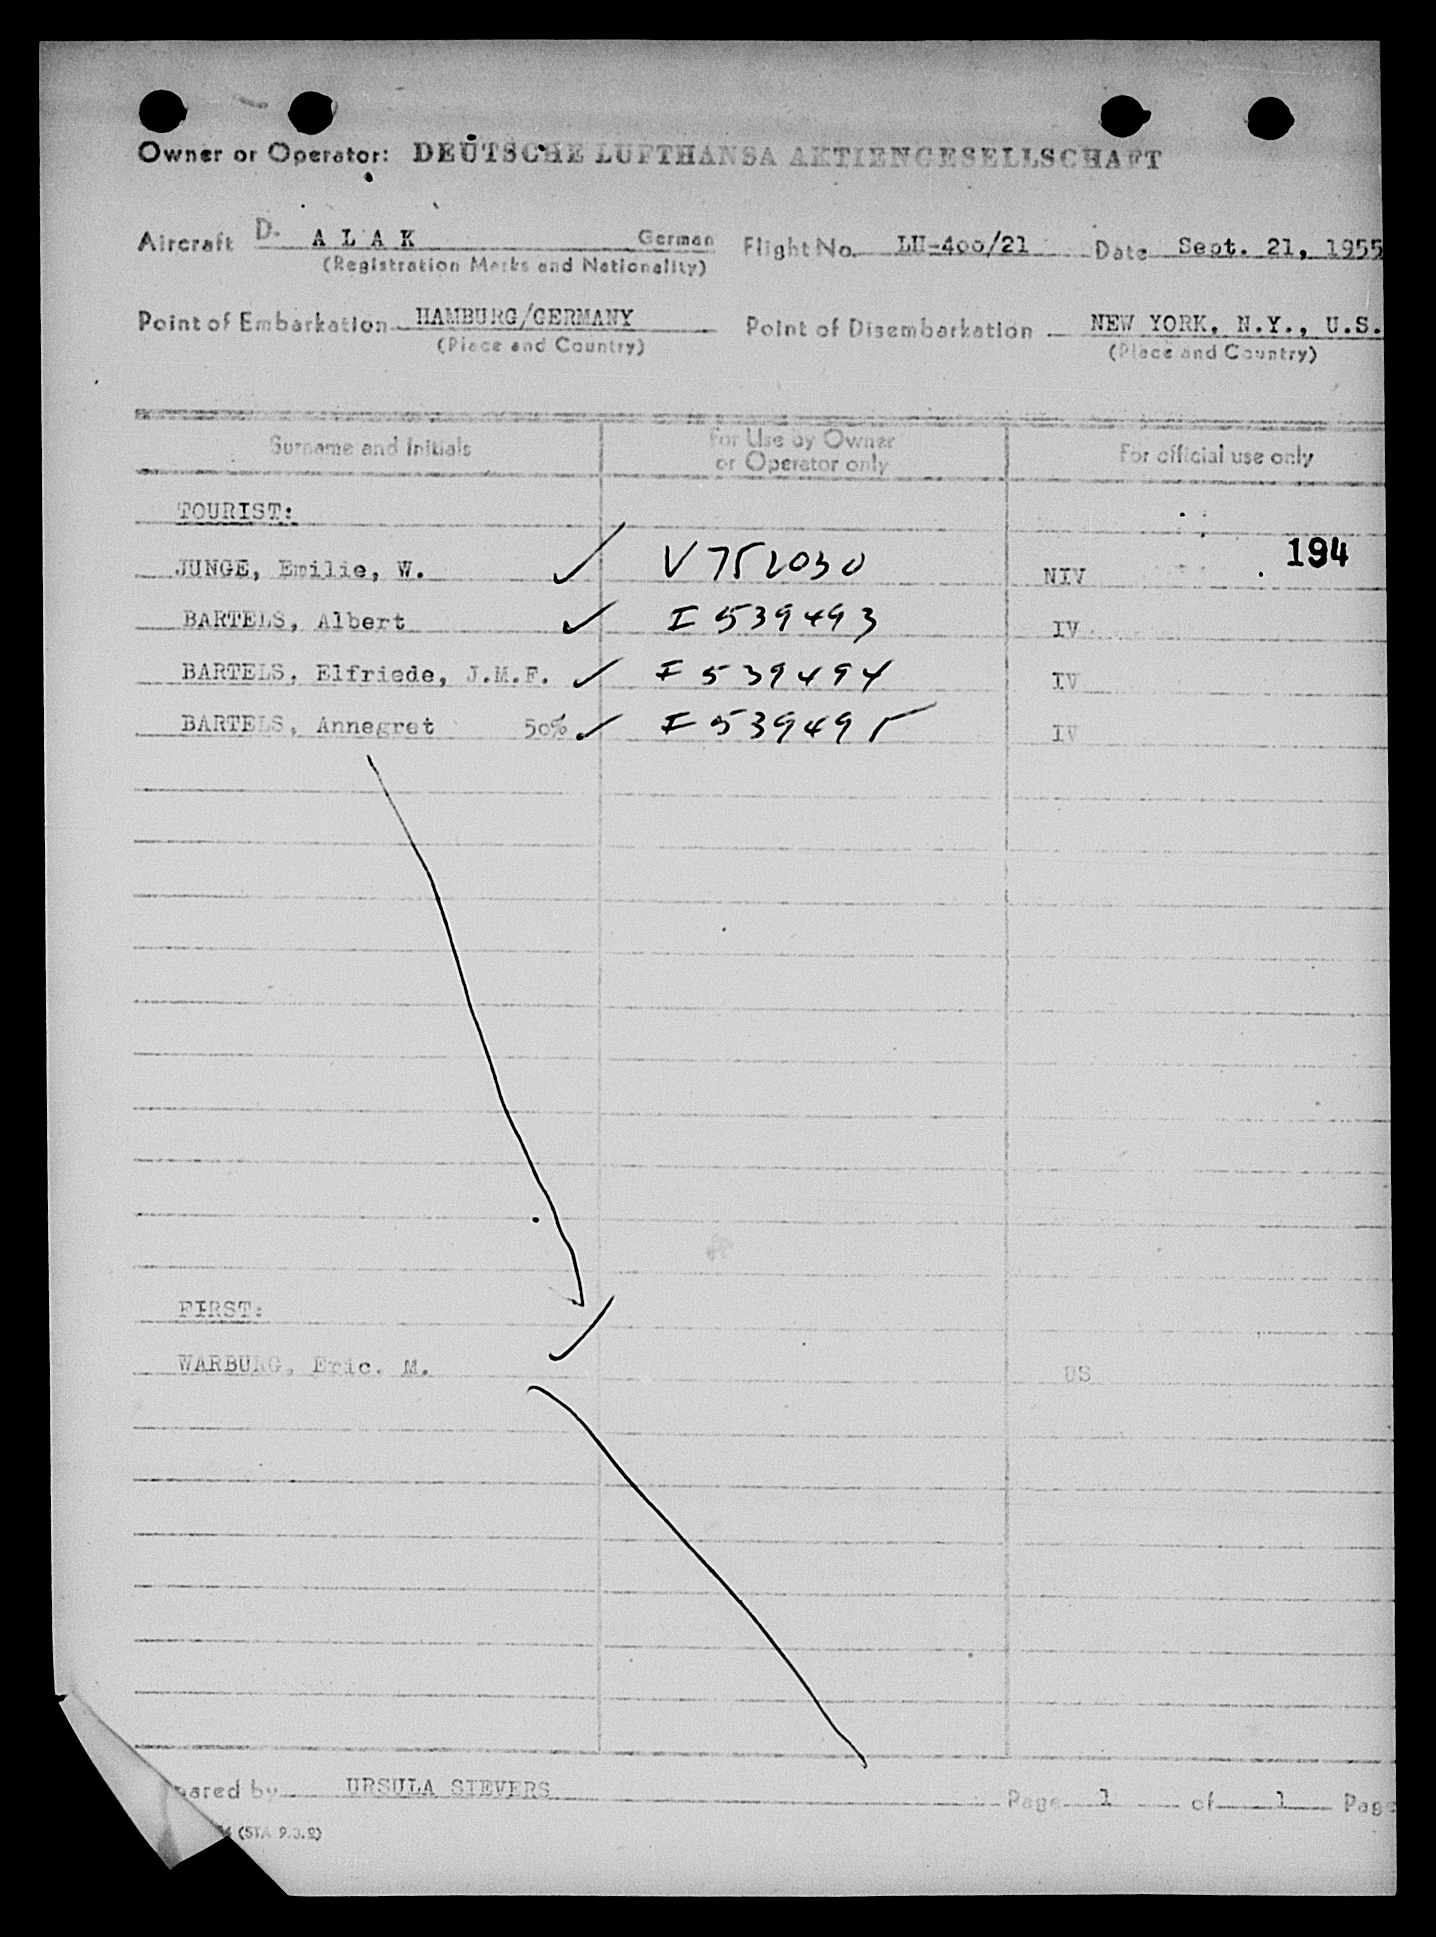 Owner or Operator: DEUTSCHE LUFTHANSA AKTIENGESELLSCHAFT
Aircraft D- A L A K German Flight No. LH-400/21 Date Sept. 21, 1955
(Registration Marks and Nationality)
Point of Embarkation HAMBURG/GERMANY Point of Disembarkation NEW YORK, N.Y., U.S.
(Place and Country) (Place and Country)
Surname and Initials For Use by Owner or Operator only For official use only
TOURIST:
194
JUNGE, Emilie, W. ✓ V 752030 NIV
BARTELS, Albert ✓ I 539493 IV
BARTELS, Elfriede, J.M.F. ✓ I 539494 IV
BARTELS, Annegret 50% ✓ I 539495 IV
FIRST:
WARBURG, Eric. M. ✓ US
pared by URSULA SIEVERS Page 1 of 1 Page
(STA 9.3.2)